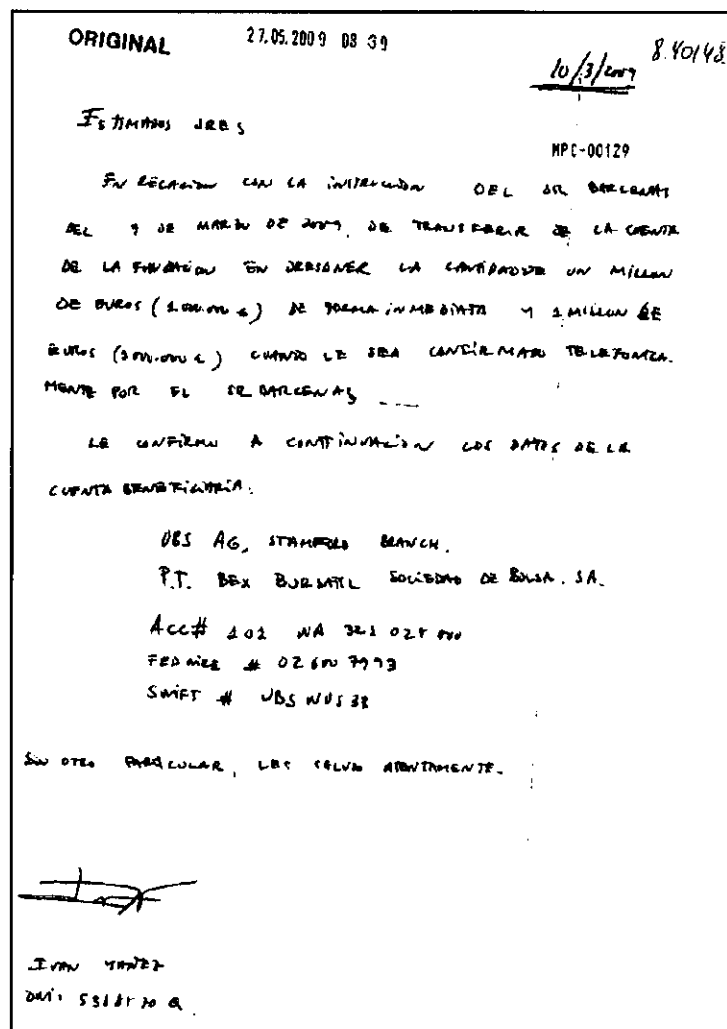 ORIGINAL
27.05.2009 08 39
8.40148
10/3/2009
ESTIMADOS SRES
MPC-00129
EN RELACION CON LA INSTRUCCION DEL SR BARCENAS
DEL 9 DE MARZO DE 2009, DE TRANSFERIR DE LA CUENTA
DE LA FUNDACION EN DRESDNER LA CANTIDAD DE UN MILLON
DE EUROS (1.000.000 €) DE FORMA INMEDIATA Y 1 MILLON DE
EUROS (1000.000 €) CUANDO LE SEA CONFIRMADO TELEFONICA-
MENTE POR EL SR BARCENAS
LE CONFIRMO A CONTINUACION LOS DATOS DE LA
CUENTA BENEFICIARIA:
UBS AG, STAMFORD BRANCH.
P.T. BEX BURSATIL SOCIEDAD DE BOLSA. SA.
Acc# 101 WA 321 028 000
FEDWIRE # 02600 7993
SWIFT # UBSWUS33
SIN OTRO PARTICULAR, LES SALUDO ATENTAMENTE.
IVAN YAÑEZ
DNI: